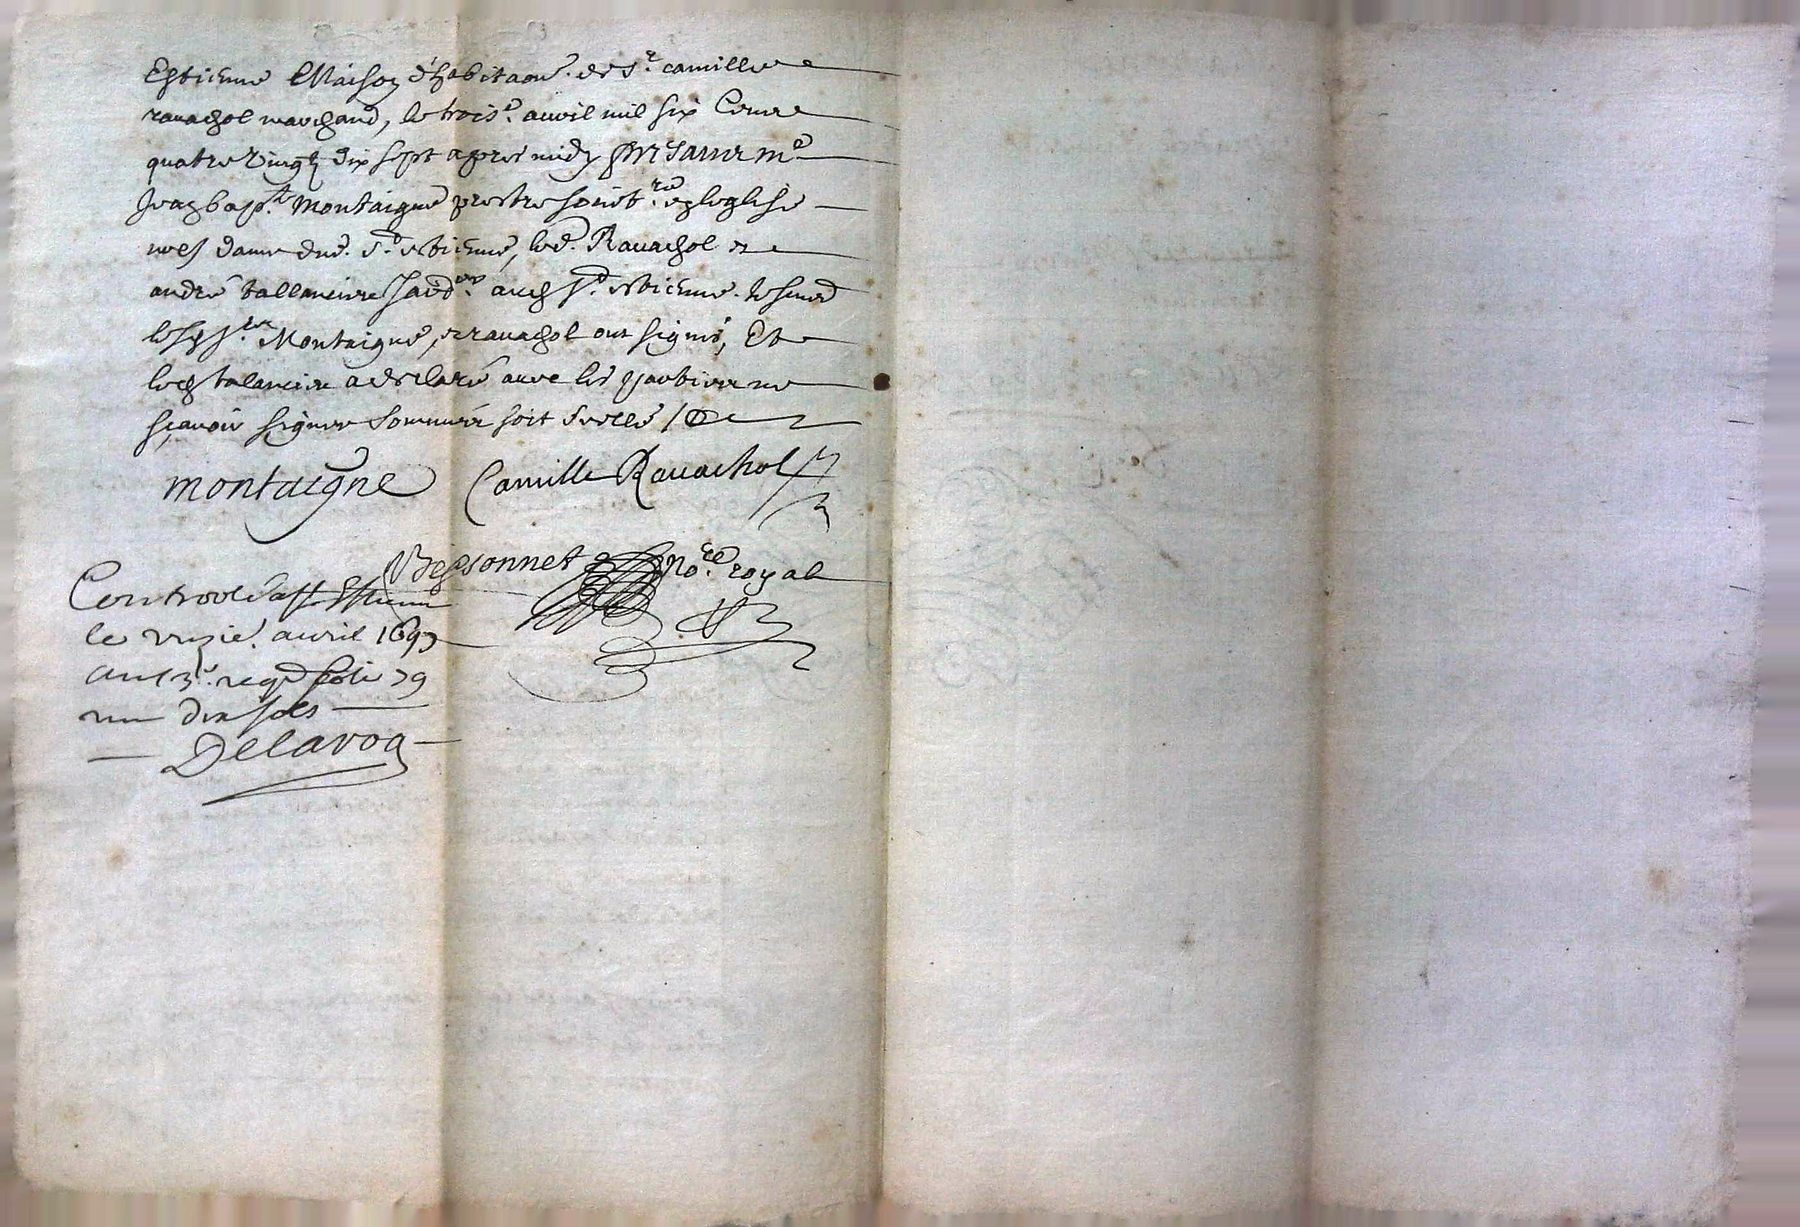 Estienne Maison d'habitaon. de sr. camille
ravachol marchand, le trois.e avril mil six Cens
quatre vingt dix sept apres midy presans me
Jean bapte. Montaigne prestre socièt.re en leglise
nostre dame dud. st. estienne, led. Ravachol et
andré tallanciere aud st. estienne. tesmoins
lesd srs. Montaigne, et ravachol ont signé, Et
led talanciere a declaré avec les parties ne
sçavoir signer sommés soit scellé
montaigne Camille Ravachol
Bessonnet No.re royal
Controole a st. Estienne
le unzie. avril 1697
au 13e. reg folio 79
dix sols
Delavog